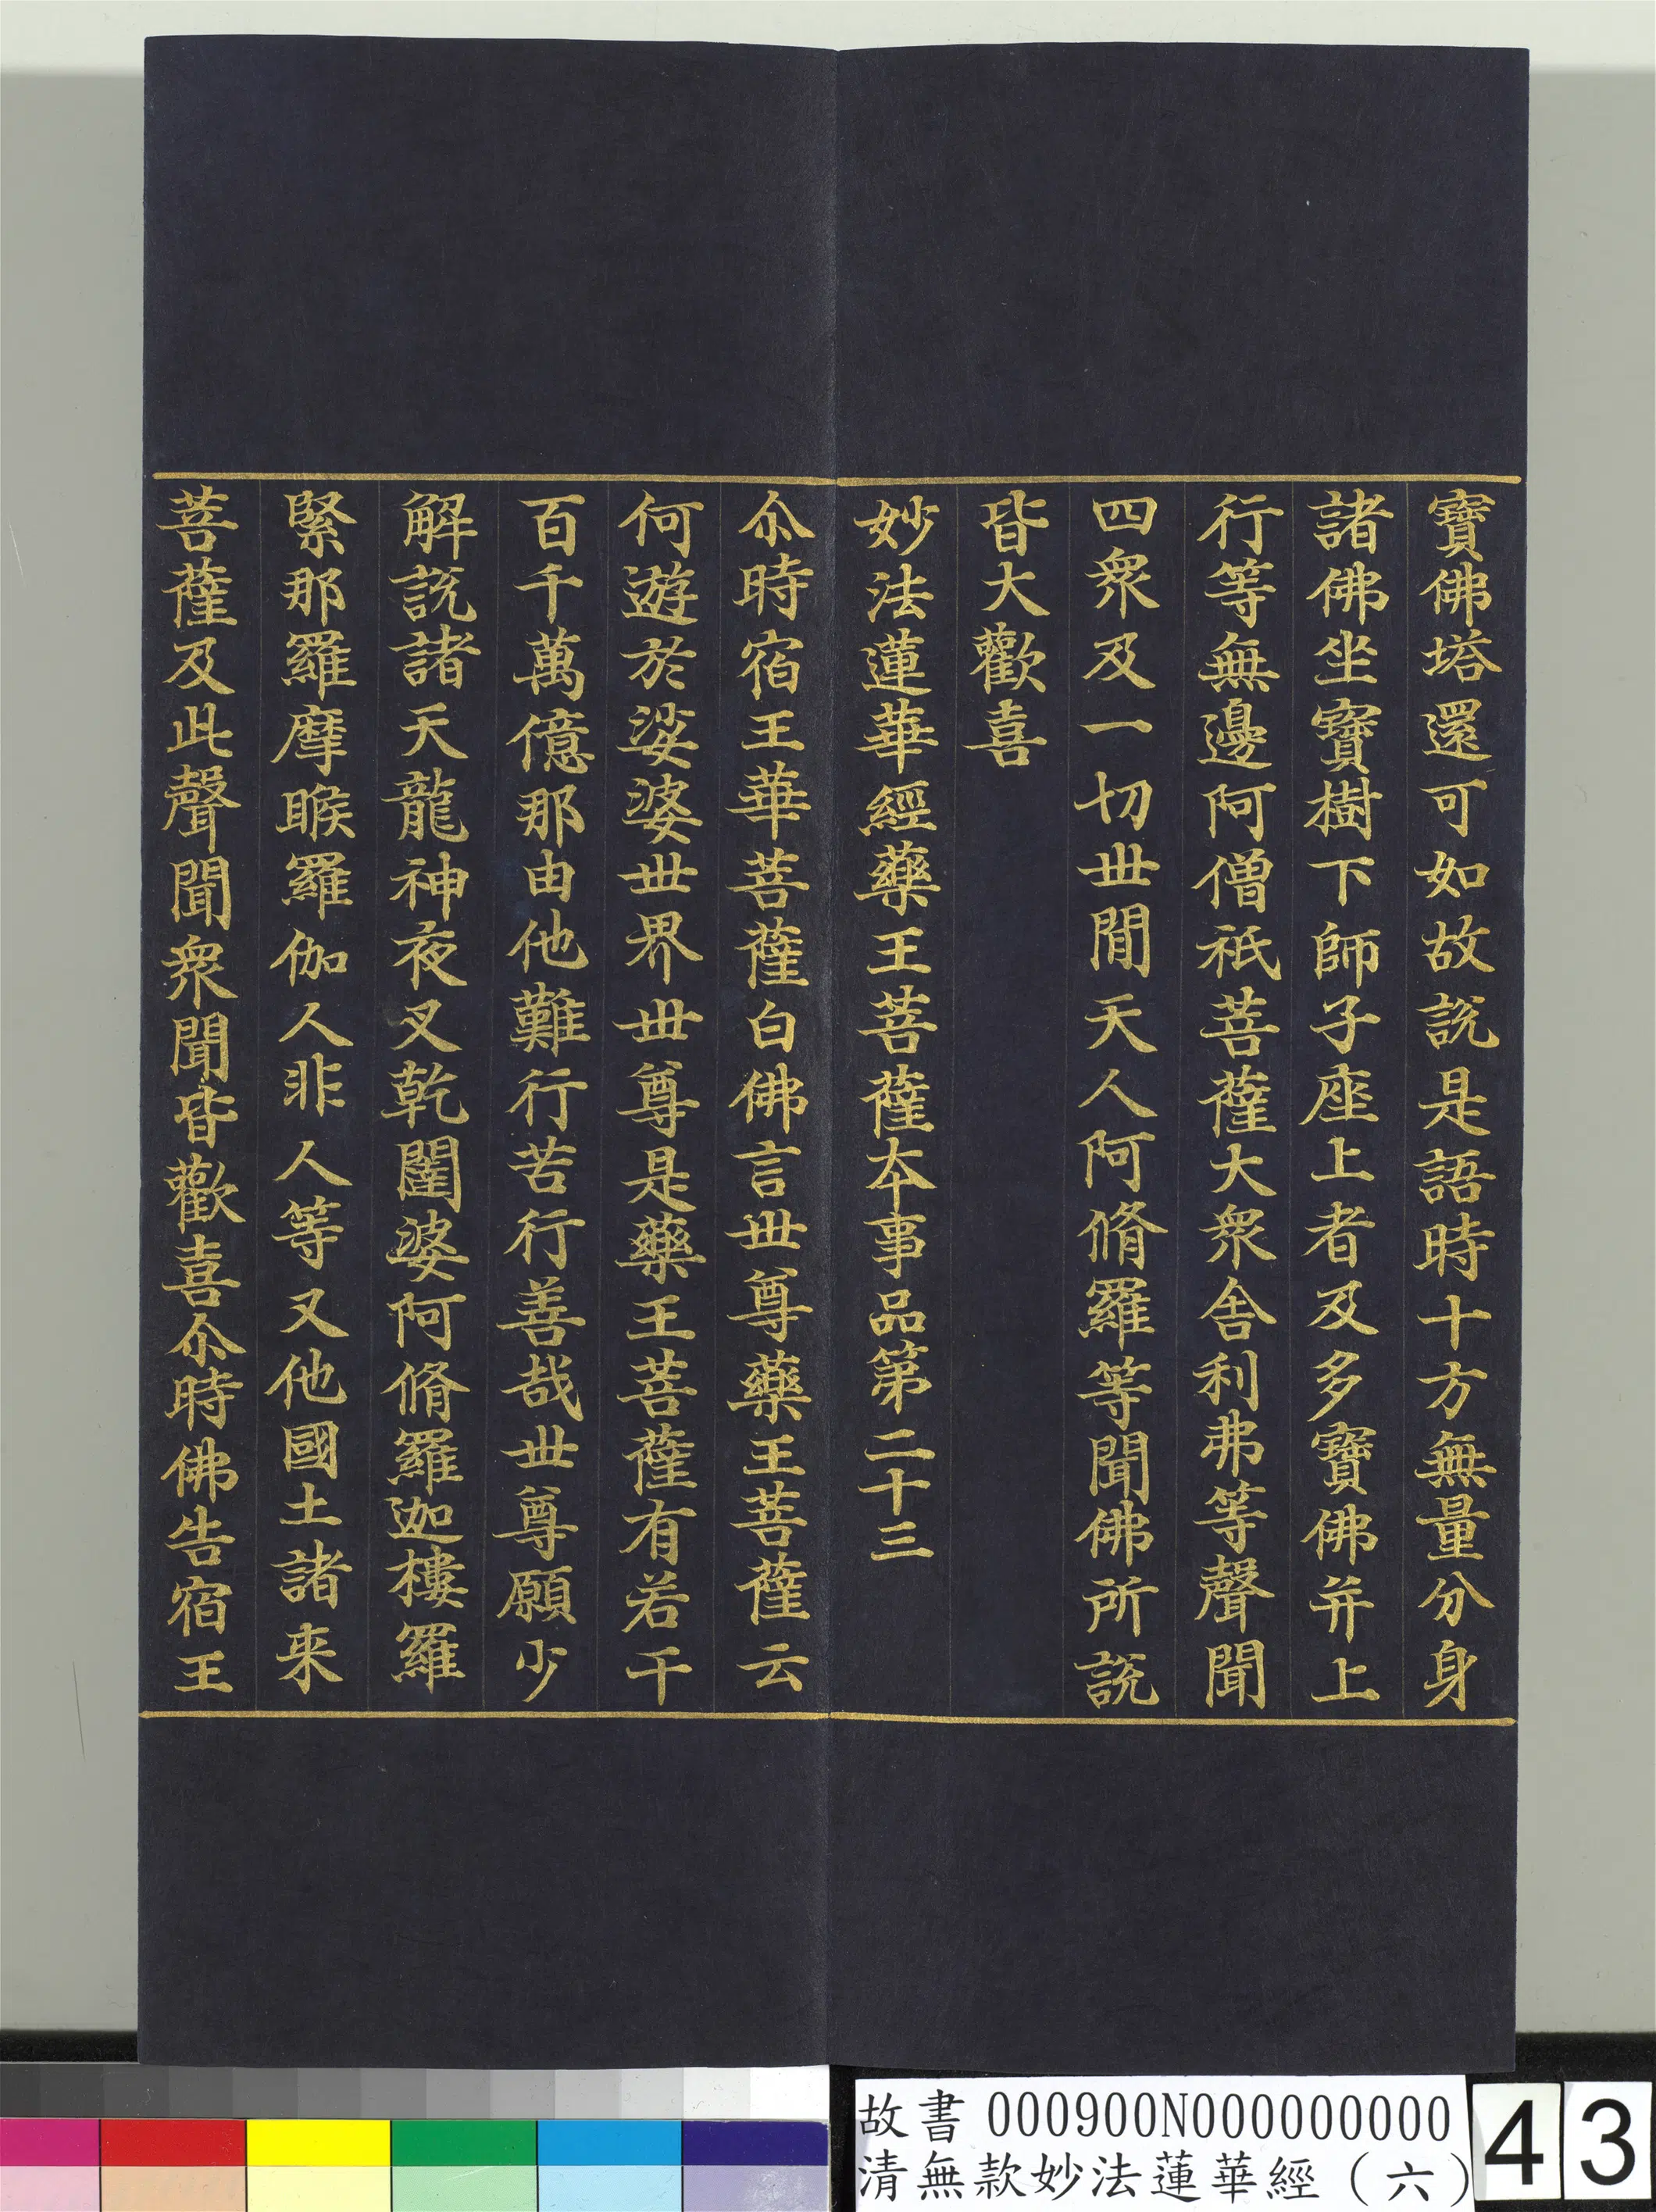 寶佛塔還可如故說是語時十方無量分身
諸佛坐寶樹下師子座上者及多寶佛并上
行等無邊阿僧祇菩薩大衆舍利弗等聲聞
四衆及一切世間天人阿脩羅等聞佛所說
皆大歡喜
妙法蓮華經藥王菩薩本事品第二十三
尒時宿王華菩薩白佛言世尊藥王菩薩云
何遊於娑婆世界世尊是藥王菩薩有若干
百千萬億那由他難行苦行善哉世尊願少
解說諸天龍神夜叉乾闥婆阿脩羅迦樓羅
緊那羅摩睺羅伽人非人等又他國土諸来
菩薩及此聲聞衆聞皆歡喜尒時佛告宿王
故書 000900N000000000
清無款妙法蓮華經（六）
43